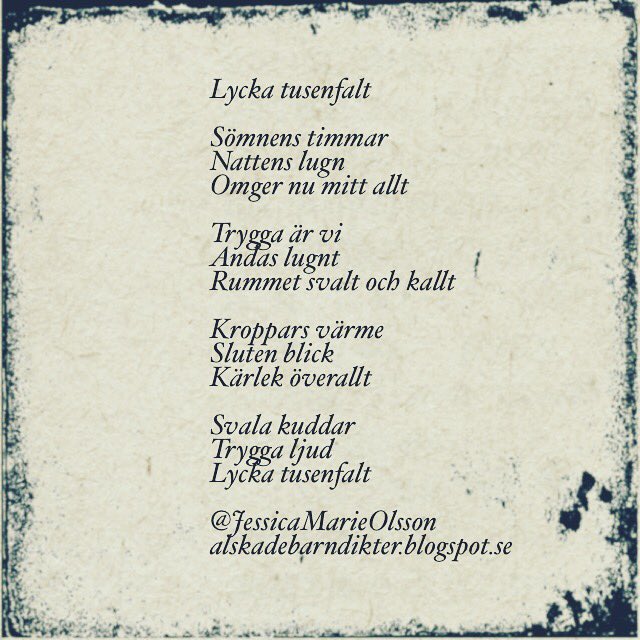 Lycka tusenfalt
Sömnens timmar
Nattens lugn
Omger nu mitt allt
Trygga är vi
Andas lugnt
Rummet svalt och kallt
Kroppars värme
Sluten blick
Kärlek överallt
Svala kuddar
Trygga ljud
Lycka tusenfalt
@JessicaMarieOlsson
alskadebarndikter.blogspot.se